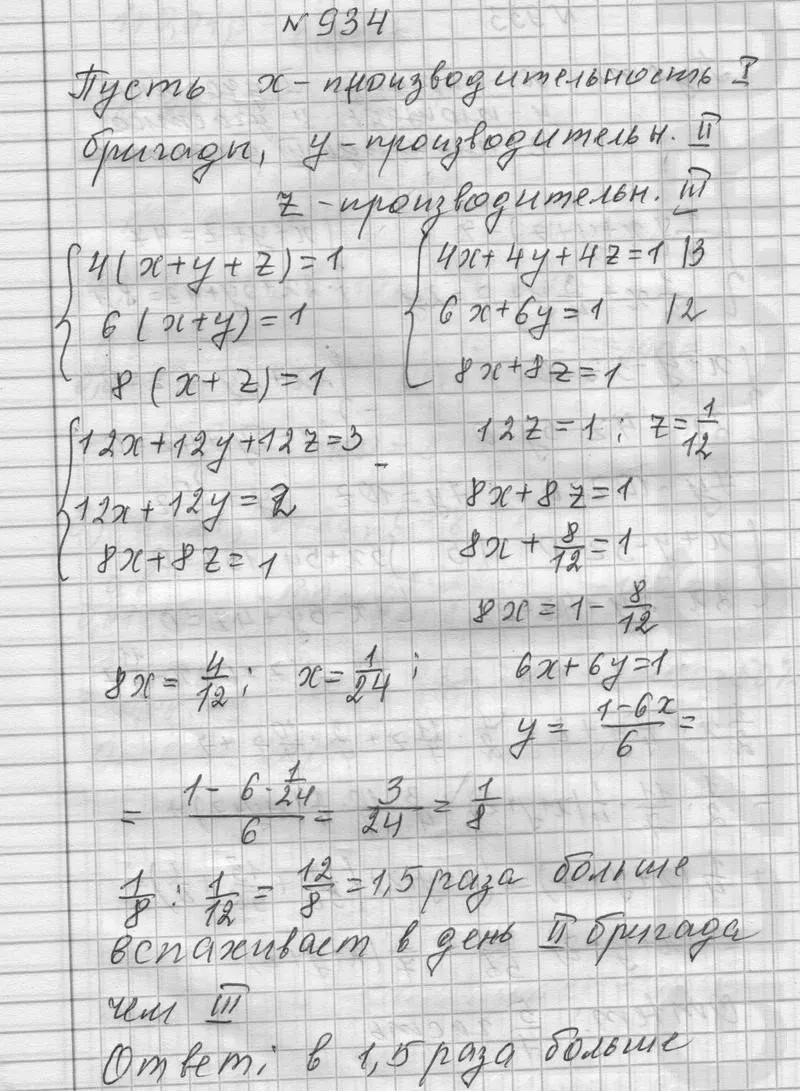 №934
Пусть x - производительность I
бригады, y - производительн. II
z - производительн. III
4(x+y+z)=1
6(x+y)=1
8(x+z)=1
4x+4y+4z=1 |3
6x+6y=1 |2
8x+8z=1
12x+12y+12z=3 -
12x+12y=2
8x+8z=1
12z=1; z=1/12
8x+8z=1
8x+8/12=1
8x=1-8/12
8x=4/12; x=1/24;
6x+6y=1
y=(1-6x)/6=
=(1-6·1/24)/6=3/24=1/8
1/8:1/12=12/8=1,5 раза больше
вспахивает в день II бригада
чем III
Ответ: в 1,5 раза больше